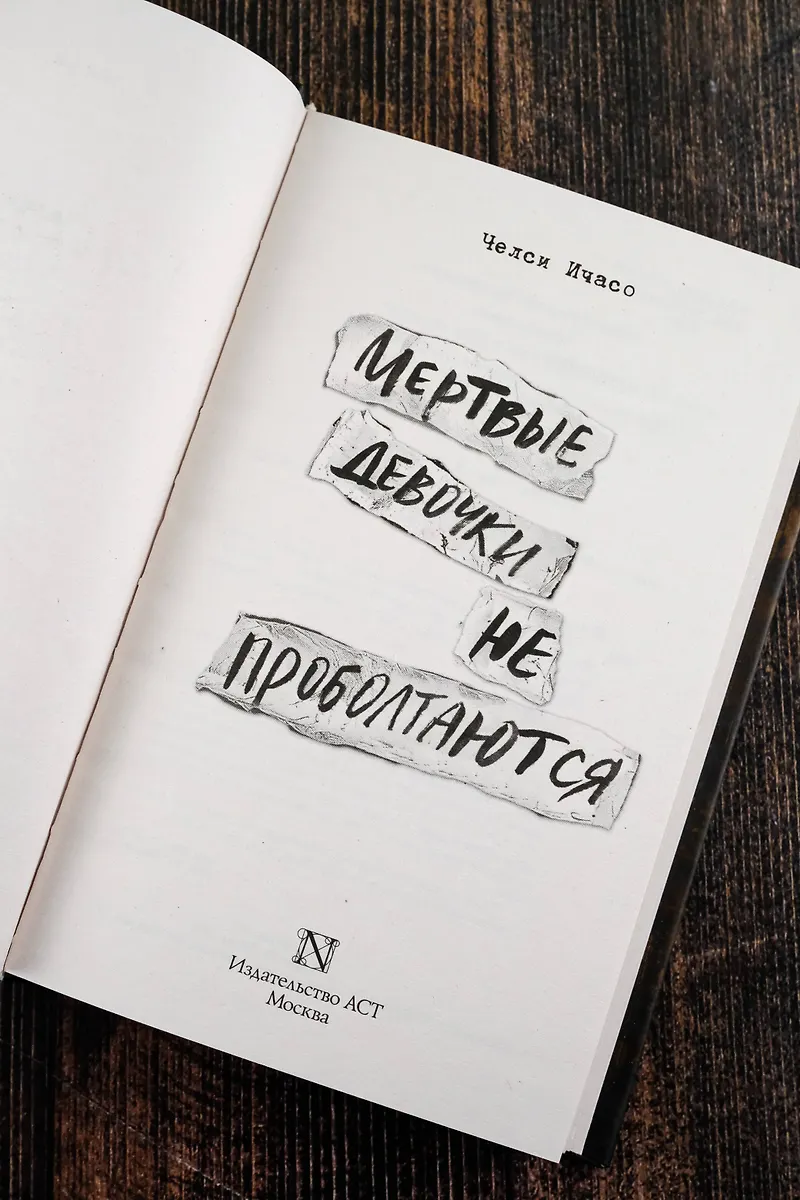 Челси Ичасо
Мертвые
девочки
не
проболтаются
N
Издательство АСТ
Москва